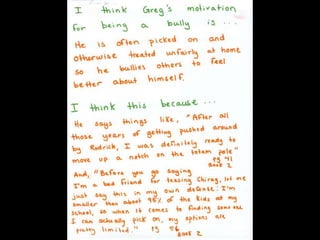 I think Greg's motivation
for being a bully is ...
He is often picked on and
otherwise treated unfairly at home
so he bullies others to feel
better about himself.
I think this because ...
He says things like, "After all
those years of getting pushed around
by Rodrick, I was definitely ready to
move up a notch on the totem pole"
pg 41
Book 2
And, "Before you go saying
I'm a bad friend for teasing Chirag, let me
just say this in my own defense: I'm
smaller than about 95% of the kids at my
school, so when it comes to finding someone
I can actually pick on, my options are
pretty limited." pg 56
Book 2